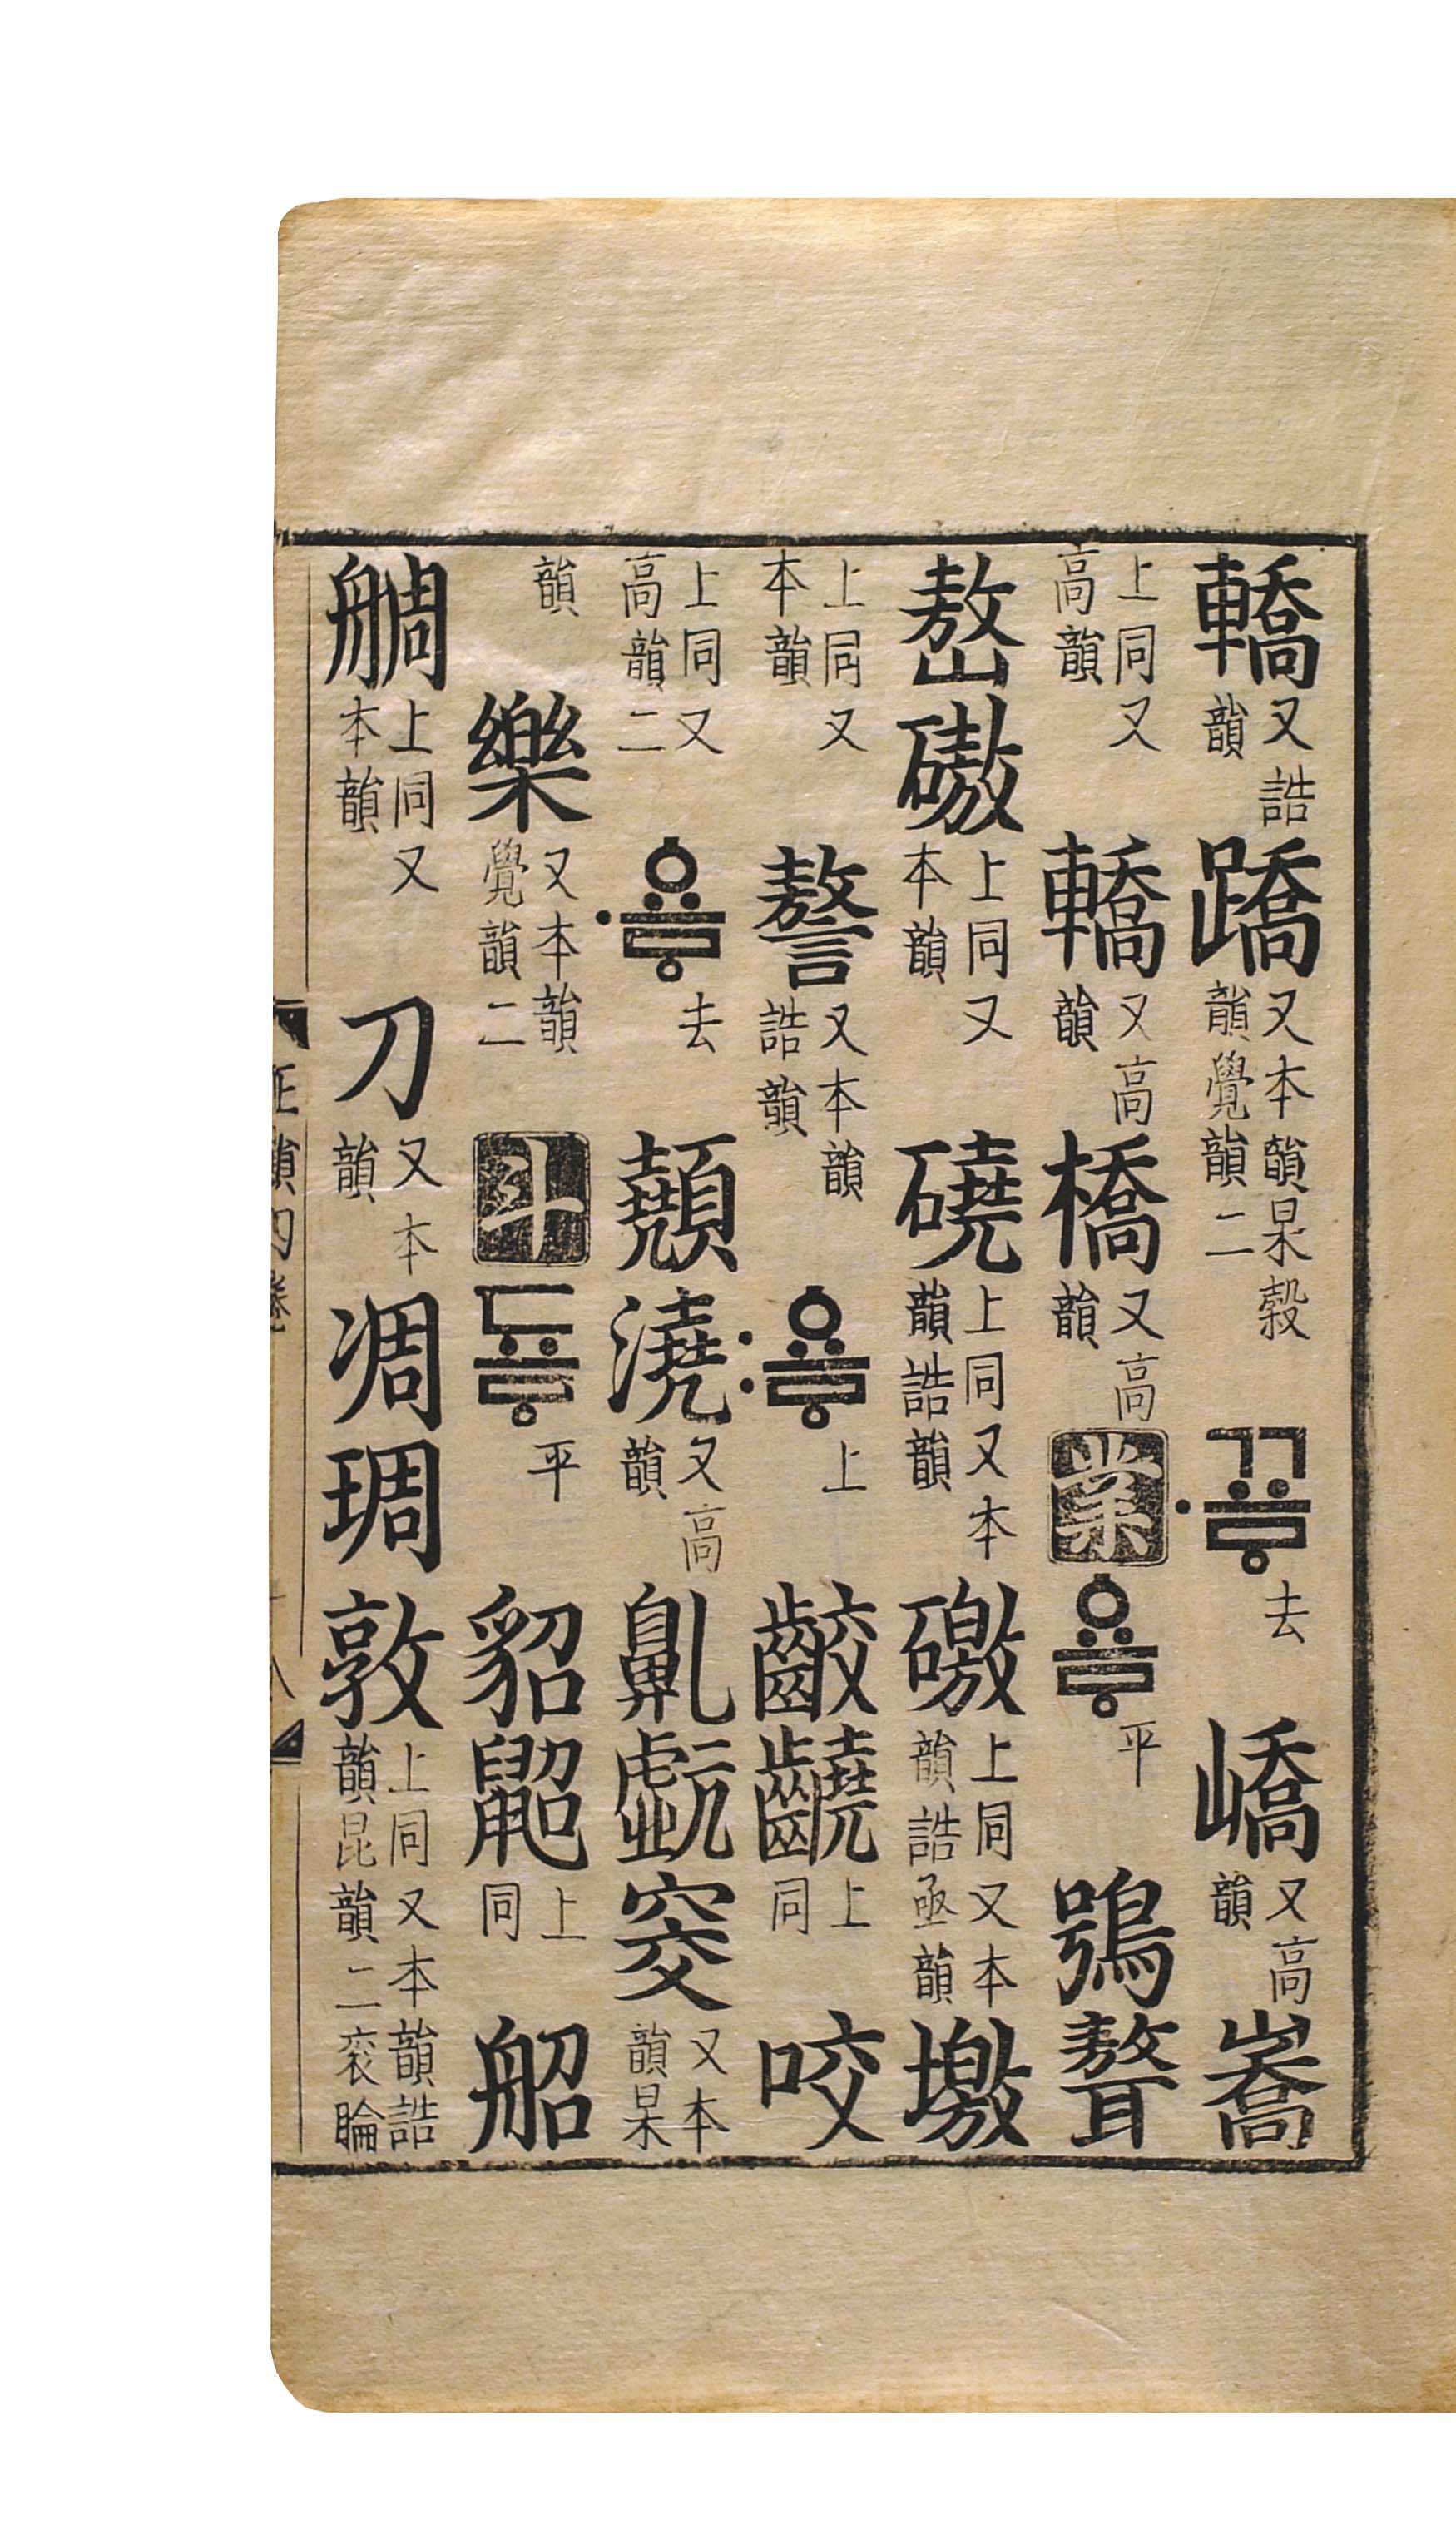 轎又誥韻蹻又本韻杲韻覺韻二ꥸᅭᇢ去嶠又高韻
上同又高韻轎又高韻橋又高韻業ᅌᅭᇢ平鴞聱
嶅磝上同又本韻磽上同又本韻誥韻礉上同又本韻誥亟韻墽
上同又本韻謷又本韻誥韻ᅌᅭᇢ上齩上同咬
上同又高韻二ᅌᅭᇢ去顤澆又高韻窔又本韻杲
韻樂又本韻覺韻二斗됴ᇢ平貂鼦上同
上同又本韻刀又本韻凋琱敦上同又本韻誥韻昆韻二袞睔